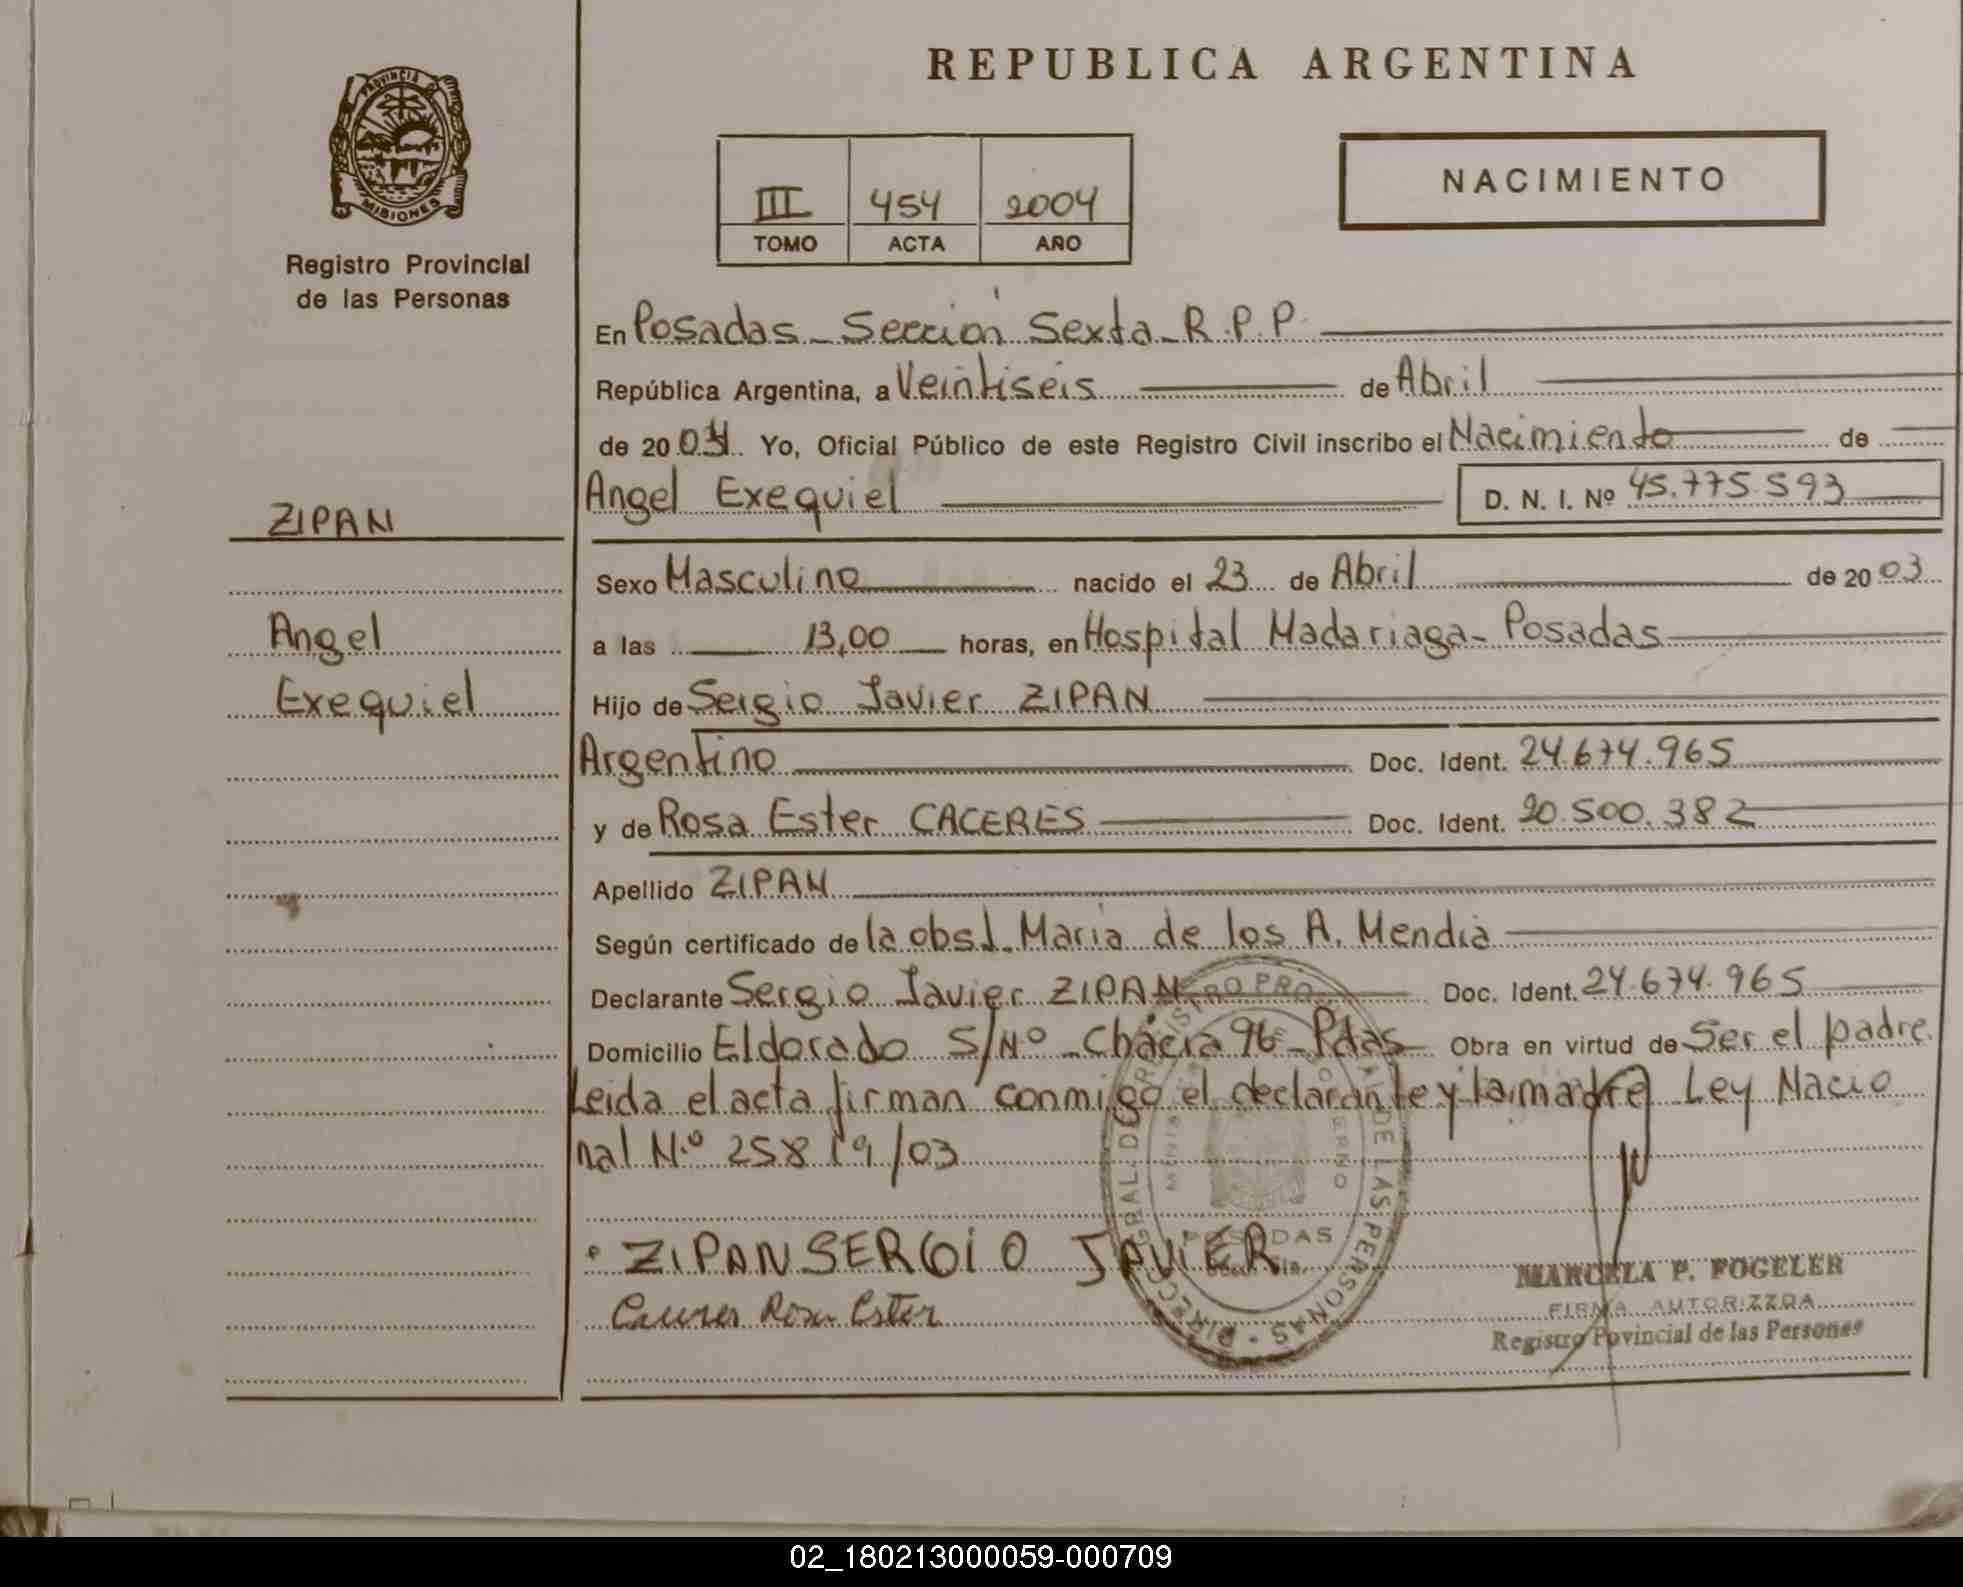 REPUBLICA ARGENTINA
PROVINCIA
MISIONES
Registro Provincial
de las Personas
III 454 2004
TOMO ACTA AÑO
NACIMIENTO
En Posadas - Sección Sexta - R.P.P.
República Argentina, a Veintiseis de Abril
de 2004. Yo, Oficial Público de este Registro Civil inscribo el Nacimiento de
Angel Exequiel D. N. I. Nº 45.775.593
ZIPAN
Angel
Exequiel
Sexo Masculino nacido el 23 de Abril de 2003
a las 13,00 horas, en Hospital Madariaga - Posadas
Hijo de Sergio Javier ZIPAN
Argentino Doc. Ident. 24.674.965
y de Rosa Ester CACERES Doc. Ident. 20.500.382
Apellido ZIPAN
Según certificado de la obst. Maria de los A. Mendia
Declarante Sergio Javier ZIPAN Doc. Ident. 24.674.965
Domicilio Eldorado S/Nº - Chacra 96 - Pdas Obra en virtud de Ser el padre.
Leida el acta firman conmigo el declarante y la madre Ley Nacio
nal N.º 25819/03
ZIPAN SERGIO JAVIER
Caceres Rosa Ester
POSADAS
MARCELA P. FOGELER
FIRMA AUTORIZZDA
Registro Povincial de las Personas
02_180213000059-000709